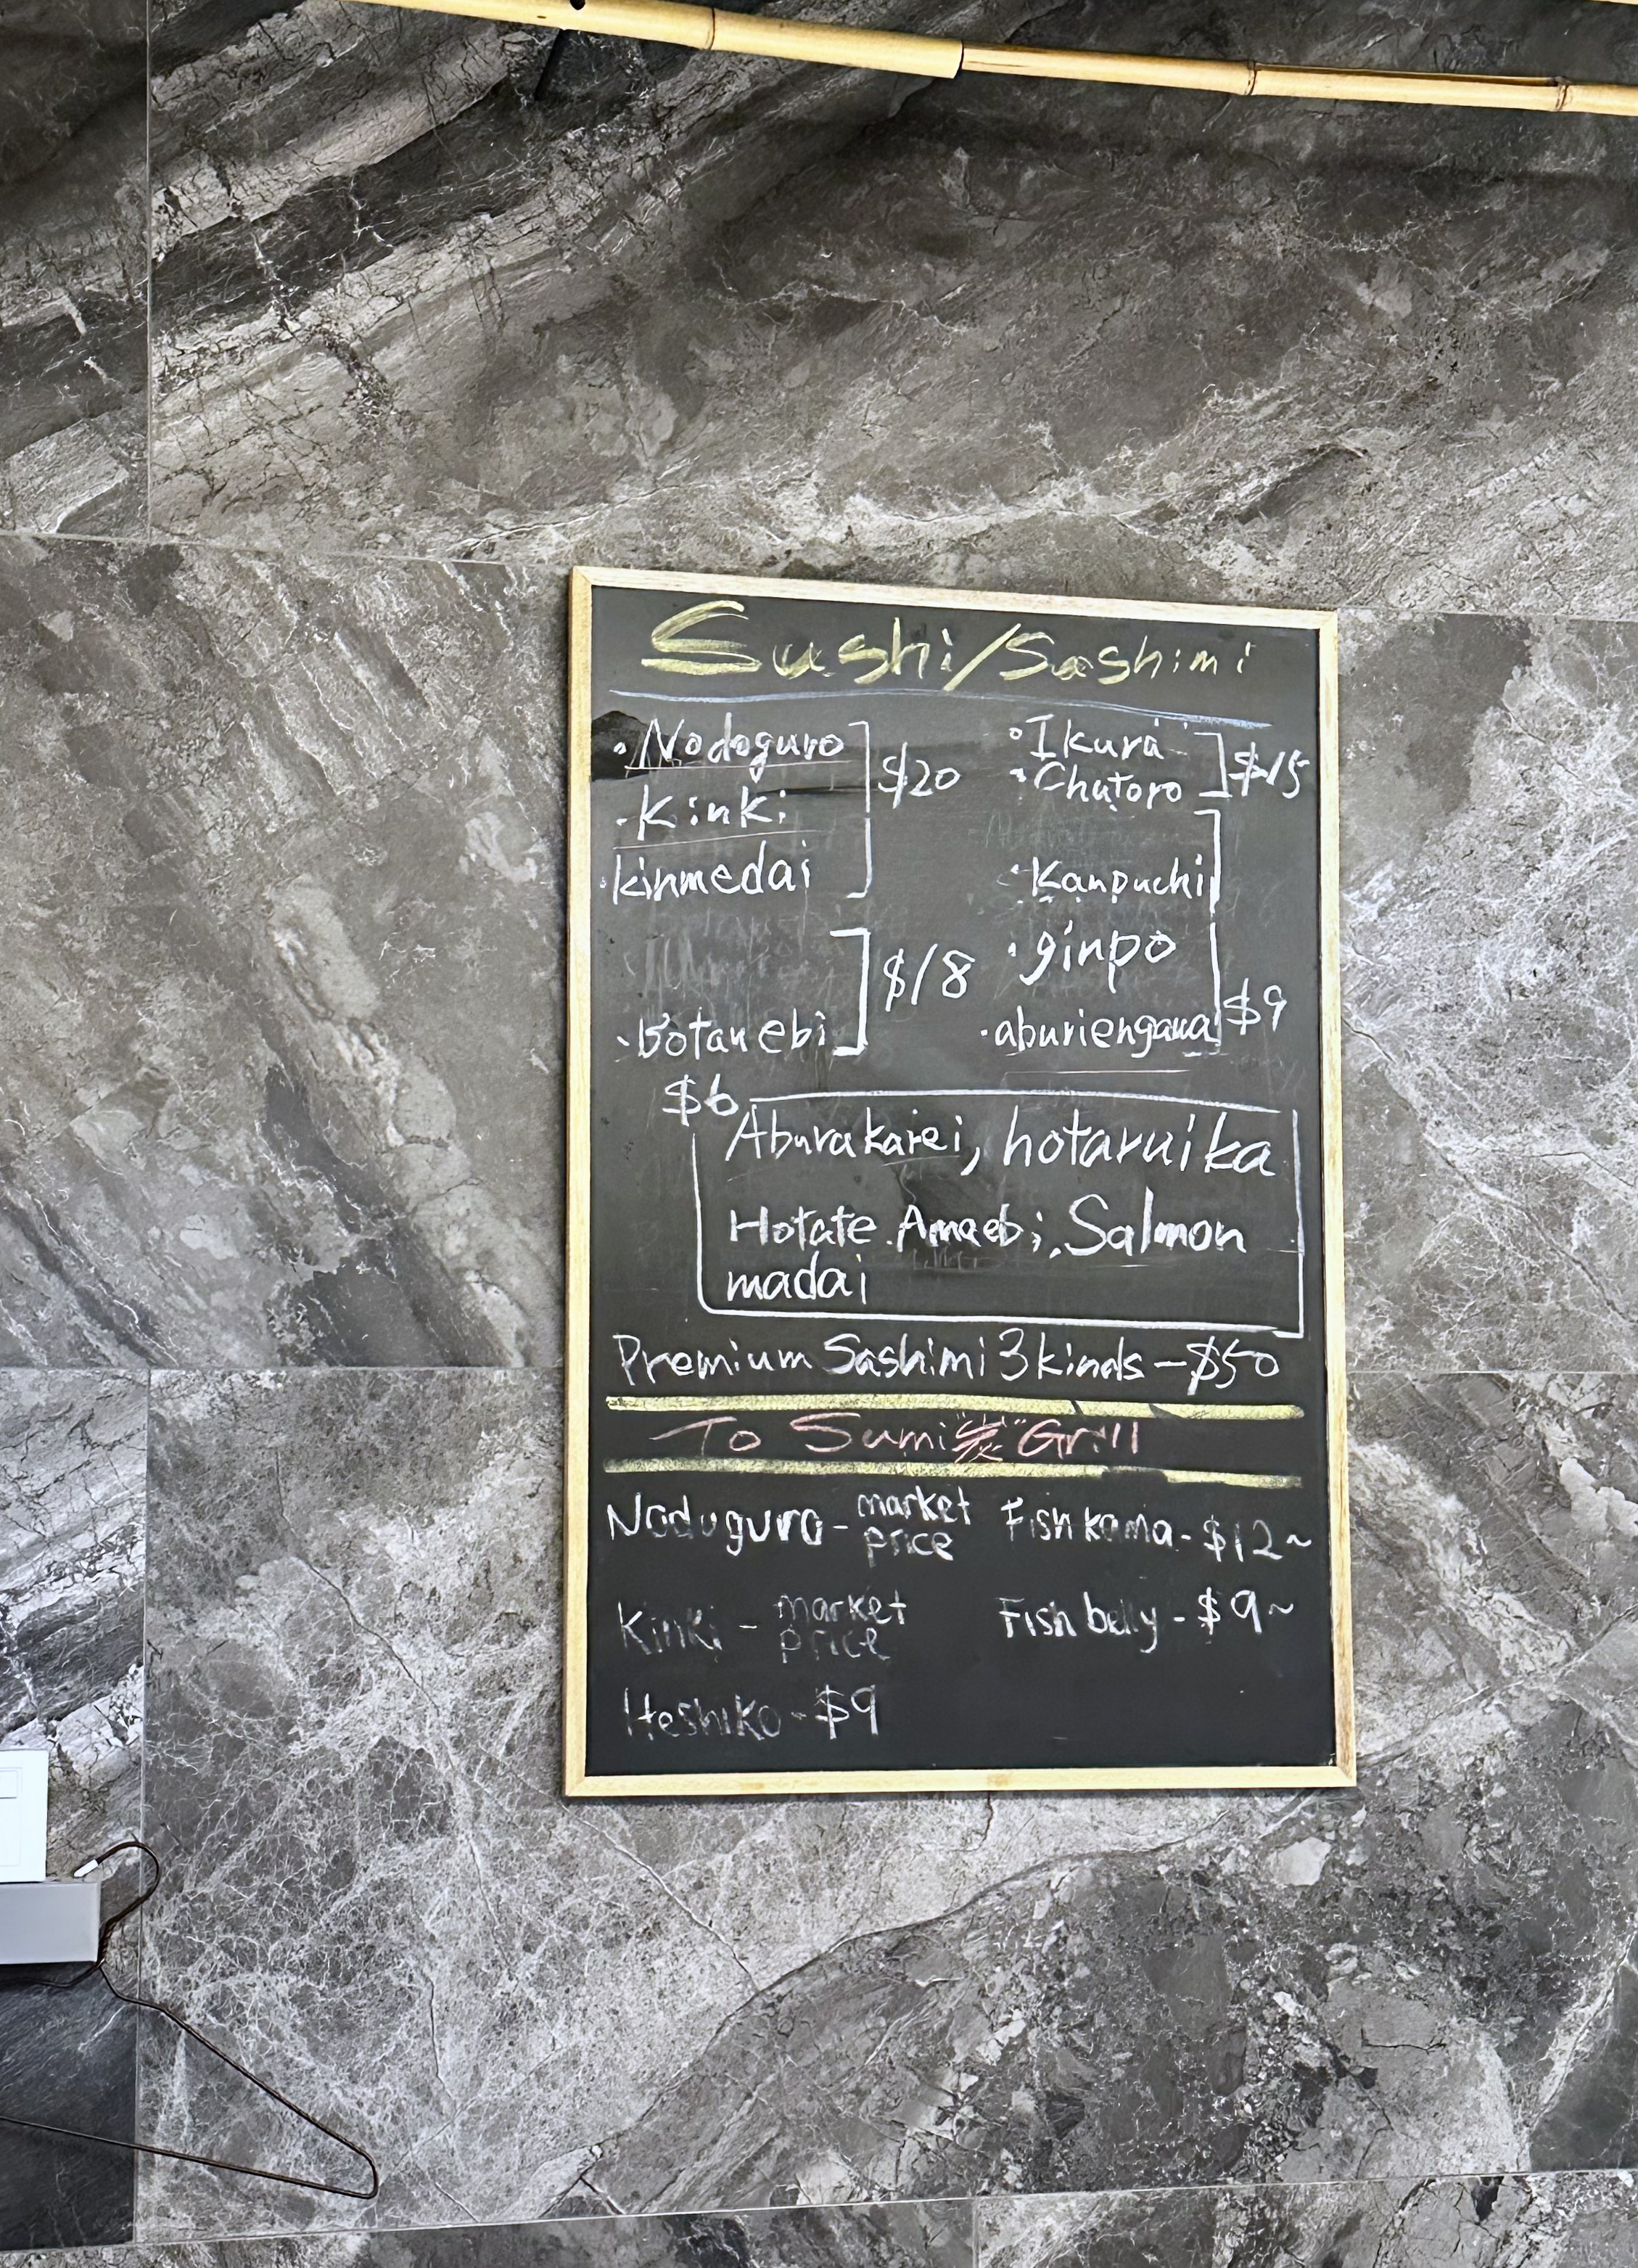 Sushi/Sashimi
·Nodoguro
·Kinki
·kinmedai
$20
·Botanebi
$18
·Ikura
·Chutoro
$15
·Kanpuchi
·ginpo
·aburiengawa
$9
$6
Aburakarei, hotaruika
Hotate. Amaebi, Salmon
madai
Premium Sashimi 3 kinds - $50
To Sumi "炭" Grill
Noduguro - market price
Kinki - market price
Heshiko - $9
Fish kama - $12~
Fish belly - $9~